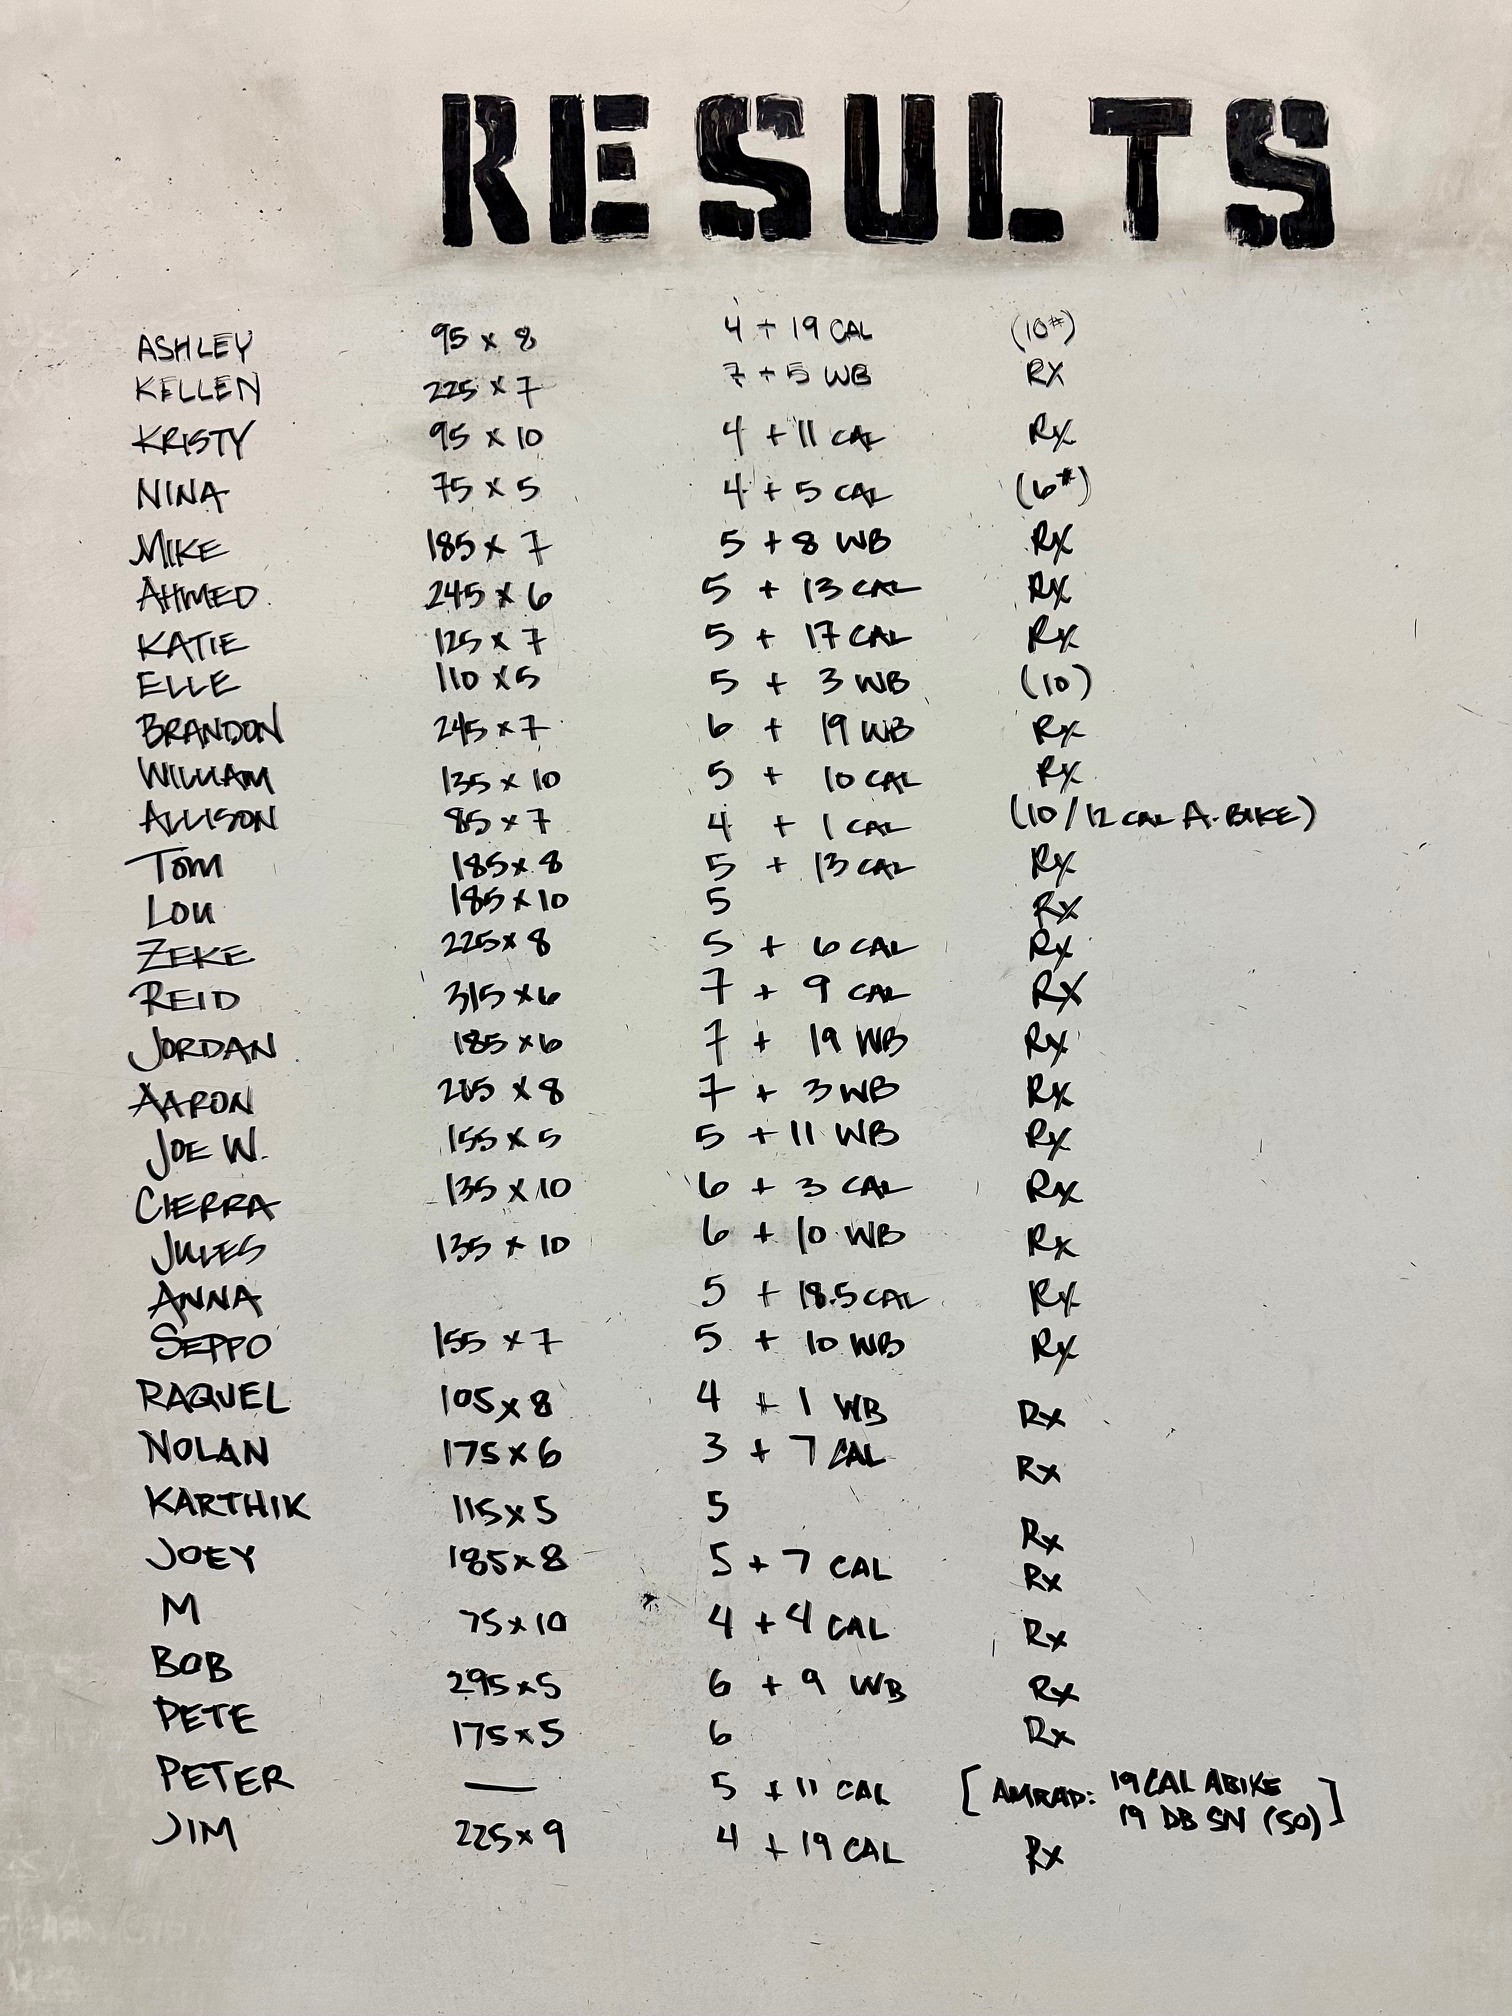 RESULTS
ASHLEY 95 x 8 4 + 19 CAL (10#)
KELLEN 225 x 7 7 + 5 WB RX
KRISTY 95 x 10 4 + 11 CAL Rx
NINA 75 x 5 4 + 5 CAL (6#)
MIKE 185 x 7 5 + 8 WB Rx
AHMED 245 x 6 5 + 13 CAL Rx
KATIE 125 x 7 5 + 17 CAL Rx
ELLE 110 x 5 5 + 3 WB (10)
BRANDON 245 x 7 6 + 19 WB Rx
WILLIAM 135 x 10 5 + 10 CAL Rx
ALLISON 85 x 7 4 + 1 CAL (10/12 CAL A. BIKE)
TOM 185 x 8 5 + 13 CAL Rx
LOU 185 x 10 5 Rx
ZEKE 225 x 8 5 + 6 CAL Rx
REID 315 x 6 7 + 9 CAL RX
JORDAN 185 x 6 7 + 19 WB Rx
AARON 205 x 8 7 + 3 WB Rx
JOE W. 155 x 5 5 + 11 WB Rx
CIERRA 135 x 10 6 + 3 CAL Rx
JULES 135 x 10 6 + 10 WB Rx
ANNA 5 + 18.5 CAL Rx
SEPPO 155 x 7 5 + 10 WB Rx
RAQUEL 105 x 8 4 + 1 WB Rx
NOLAN 175 x 6 3 + 7 CAL Rx
KARTHIK 115 x 5 5 Rx
JOEY 185 x 8 5 + 7 CAL Rx
M 75 x 10 4 + 4 CAL Rx
BOB 295 x 5 6 + 9 WB Rx
PETE 175 x 5 6 Rx
PETER — 5 + 11 CAL [AMRAP: 19 CAL ABIKE
19 DB SN (50)]
JIM 225 x 9 4 + 19 CAL Rx